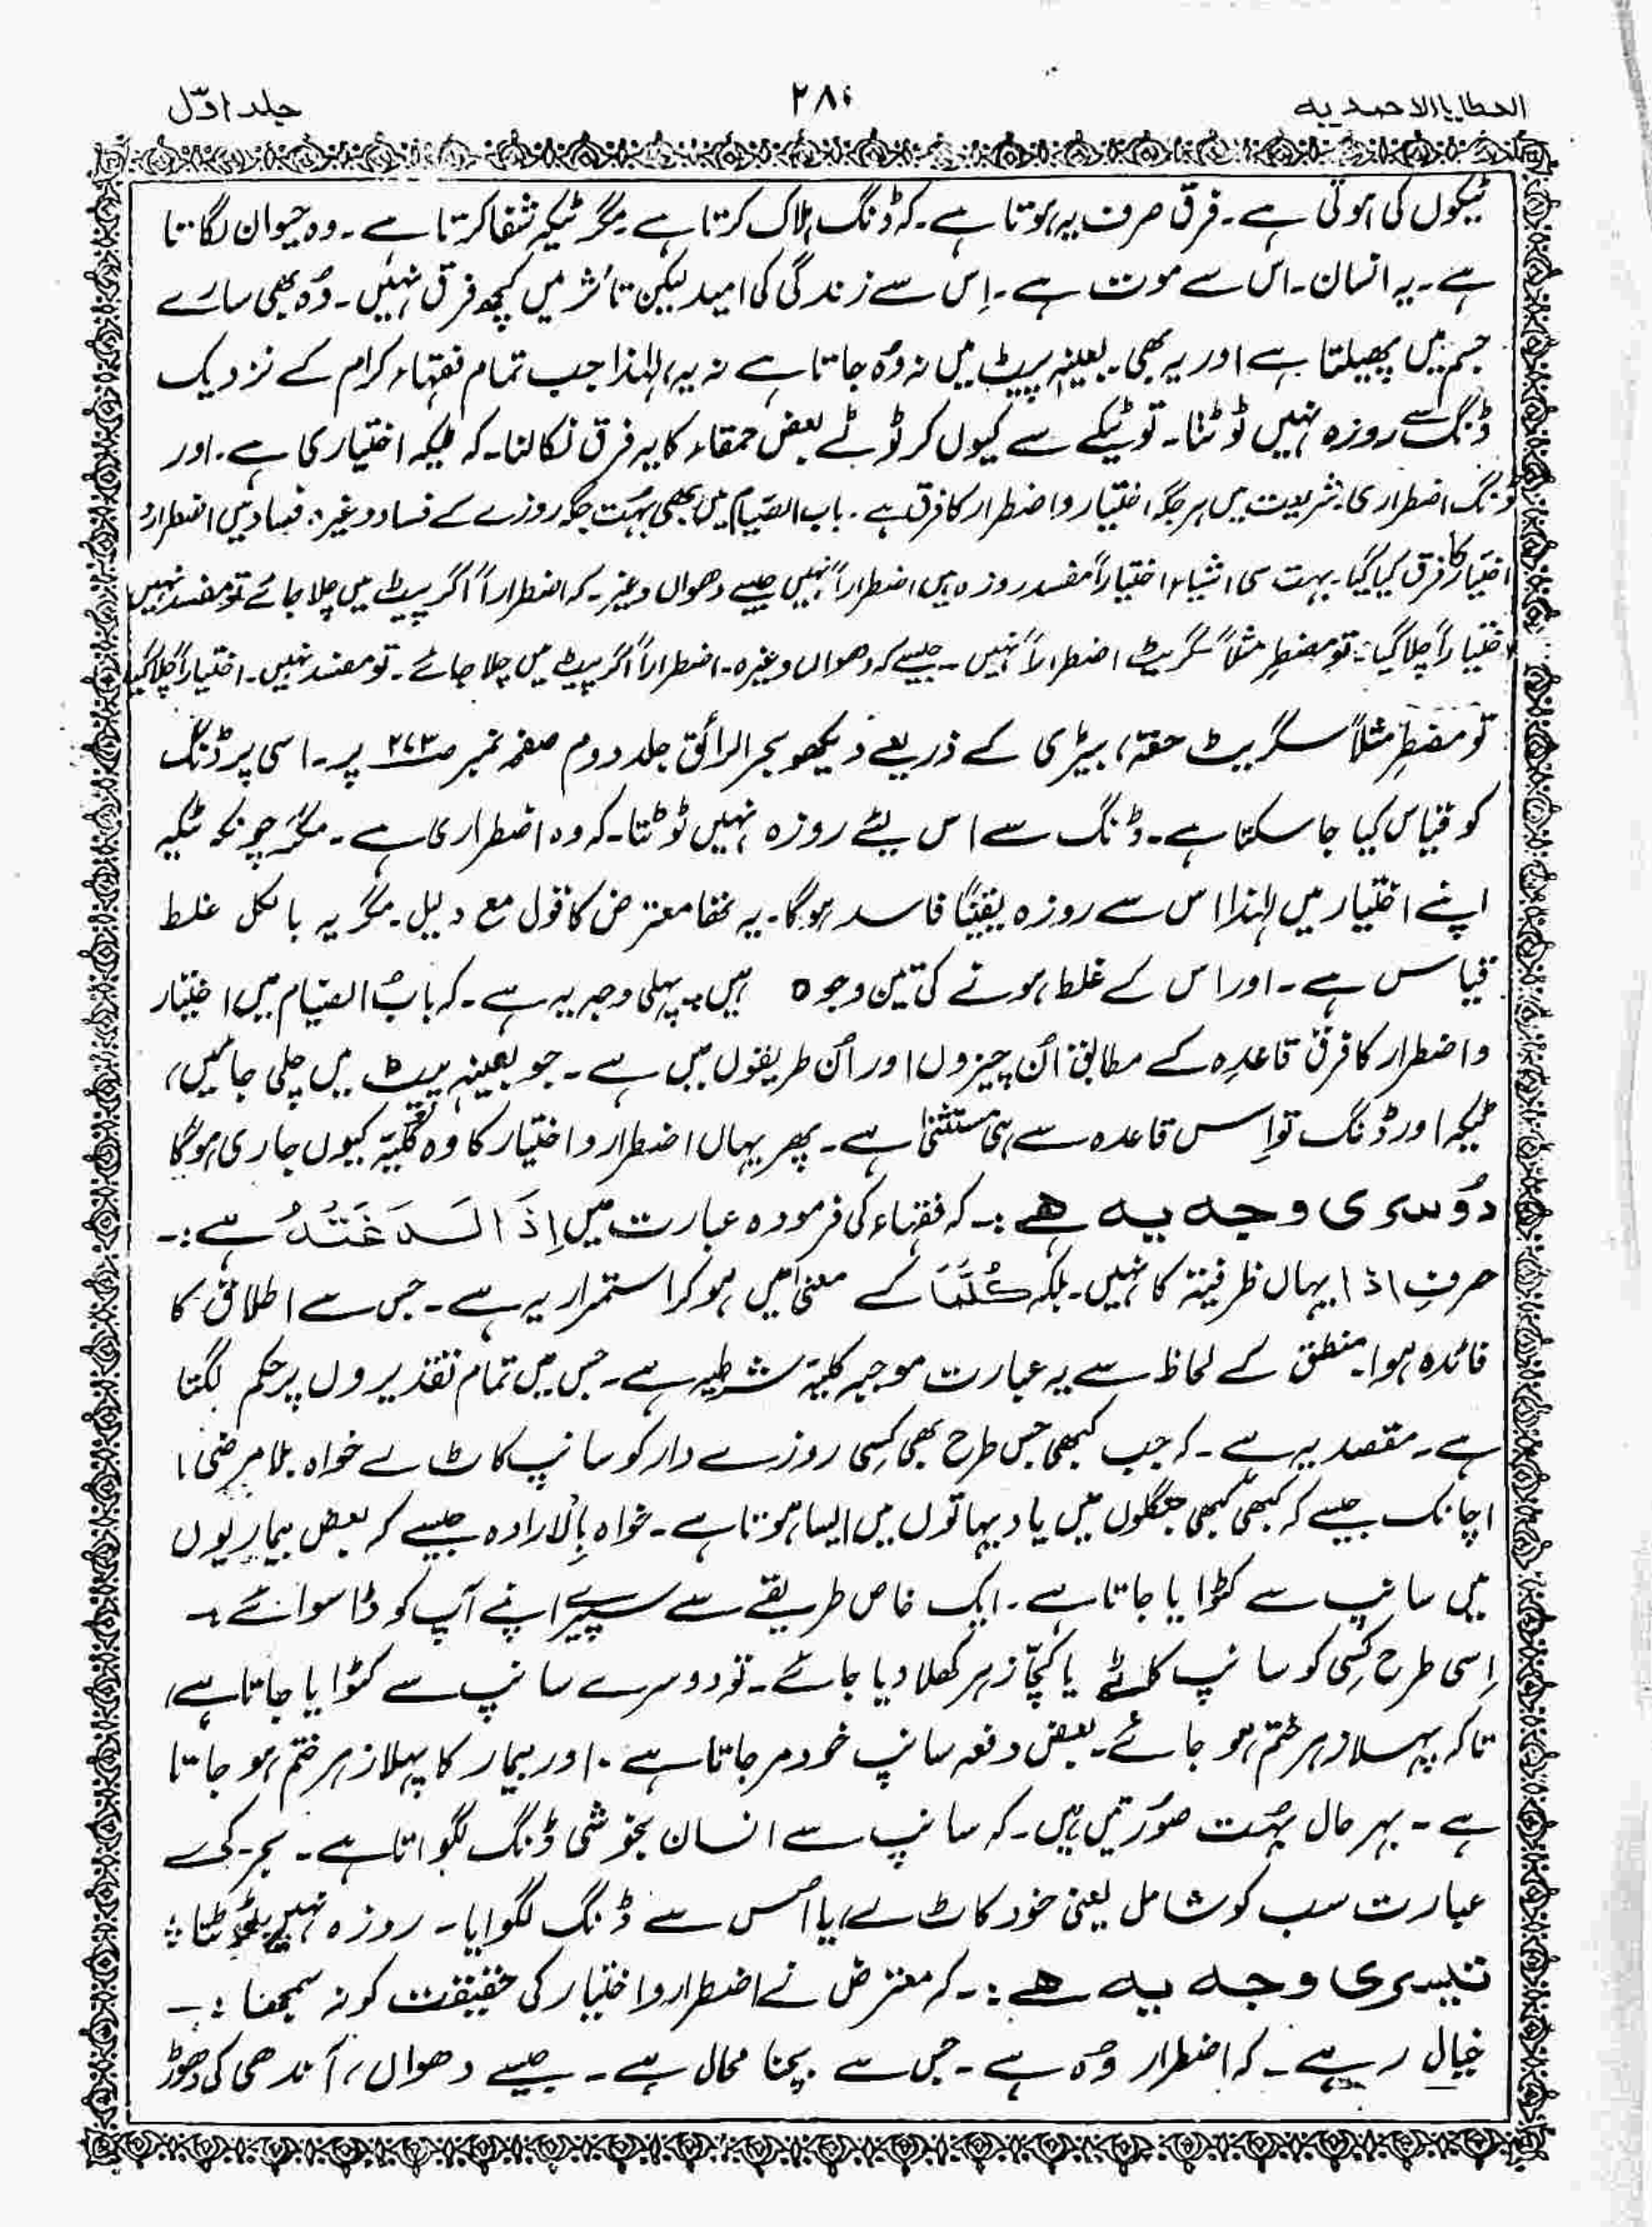 العطایا الاحمدیہ
۲۸۰
جلد اوّل
ٹیکوں کی ہوتی ہے۔ فرق صرف یہ ہوتا ہے۔ کہ ڈنگ ہلاک کرتا ہے۔ مگر ٹیکہ شفا کرتا ہے۔ وہ حیوان لگاتا
ہے۔ یہ انسان۔ اس سے موت ہے۔ اِس سے زندگی کی امید لیکن تاثر میں کچھ فرق نہیں۔ وہ بھی سارے
جسم میں پھیلتا ہے اور یہ بھی۔ بعینہٖ پیٹ میں نہ وہ جاتا ہے نہ یہ، لہٰذا جب تمام فقہاء کرام کے نزدیک
ڈنگ سے روزہ نہیں ٹوٹتا۔ تو ٹیکے سے کیوں کر ٹوٹے بعض حمقاء کا یہ فرق نکالنا۔ کہ ٹیکہ اختیاری ہے۔ اور
ڈنگ اضطراری، شریعت میں ہر جگہ اختیار و اضطرار کا فرق ہے۔ باب الصّیام میں بھی بہُت جگہ روزے کے فساد و غیرہ فساد میں اضطرار و
اختیار کا فرق کیا گیا۔ بہت سی اشیاء اختیاراً مفسد روزہ ہیں اضطراراً نہیں جیسے دھواں وغیرہ۔ کہ اضطراراً اگر پیٹ میں چلا جائے تو مفسد نہیں
اختیاراً چلا گیا: تو مفطرِ مثلاً سگریٹ اضطراراً نہیں۔ جیسے کہ دھواں وغیرہ۔ اضطراراً اگر پیٹ میں چلا جائے۔ تو مفسد نہیں۔ اختیاراً چلا گیا
تو مفطرِ مثلاً سگریٹ حقہ، بیڑی کے ذریعے دیکھو بحر الرائق جلد دوم صفحہ نمبر ص۲۷۳ پر۔ اسی پر ڈنگ
کو قیاس کیا جا سکتا ہے۔ ڈنگ سے اس لئے روزہ نہیں ٹوٹتا۔ کہ وہ اضطراری ہے۔ مگر چونکہ ٹیکہ
اپنے اختیار میں لہٰذا اس سے روزہ یقیناً فاسد ہو گا۔ یہ تھا معترض کا قول مع دلیل۔ مگر یہ بالکل غلط
قیاس ہے۔ اور اس کے غلط ہونے کی تین وجوہ ہیں۔ پہلی وجہ یہ ہے۔ کہ بابُ الصّیام میں اختیار
و اضطرار کا فرق قاعدہ کے مطابق اُن چیزوں اور اُن طریقوں میں ہے۔ جو بعینہٖ پیٹ میں چلی جائیں،
ٹیکہ اور ڈنگ تو اِس قاعدہ سے ہی مستثنیٰ ہے۔ پھر یہاں اضطرار و اختیار کا وہ کلیّہ کیوں جاری ہو گا
دوُسری وجہ یہ ہے :۔ کہ فقہاء کی فرمودہ عبارت میں اِذَا لَدَغَتْہُ ہے :۔
حرفِ اذا یہاں ظرفیتہ کا نہیں۔ بلکہ کُلَّمَا کے معنیٰ میں ہو کر استمراریہ ہے۔ جس سے اطلاق کا
فائدہ ہوا۔ منطق کے لحاظ سے یہ عبارت موجبہ کلیّہ شرطیہ ہے۔ جس میں تمام تقدیروں پر حکم لگتا
ہے۔ مقصد یہ ہے۔ کہ جب کبھی جس طرح بھی کسِی روزے دار کو سانپ کاٹ لے خواہ بلا مرضی،
اچانک جیسے کہ کبھی کبھی جنگلوں میں یا دیہاتوں میں ایسا ہوتا ہے۔ خواہ بالارادہ جیسے کہ بعض بیماریوں
میں سانپ سے کٹوایا جاتا ہے۔ ایک خاص طریقے سے سپیرا اپنے آپ کو ڈسوائے۔
اِسی طرح کسِی کو سانپ کاٹے یا کچّا زہر کھلا دیا جائے۔ تو دوسرے سانپ سے کٹوایا جاتا ہے،
تاکہ پہلا زہر ختم ہو جائے۔ بعض دفعہ سانپ خود مر جاتا ہے۔ اور بیمار کا پہلا زہر ختم ہو جاتا
ہے۔ بہر حال بہُت صوُرتیں ہیں۔ کہ سانپ سے انسان بخوشی ڈنگ لگواتا ہے۔ بحر کی
عبارت سب کو شامل یعنی خود کاٹ لے، یا اُس سے ڈنگ لگوایا۔ روزہ نہیں ٹوٹتا :
تیسری وجہ یہ ہے :۔ کہ معترض نے اضطرار و اختیار کی حقیقت کو نہ سمجھا :۔
خیال رہے۔ کہ اضطرار وُہ ہے۔ جس سے بچنا محال ہے۔ جیسے دھواں، آندھی کی دھوڑ